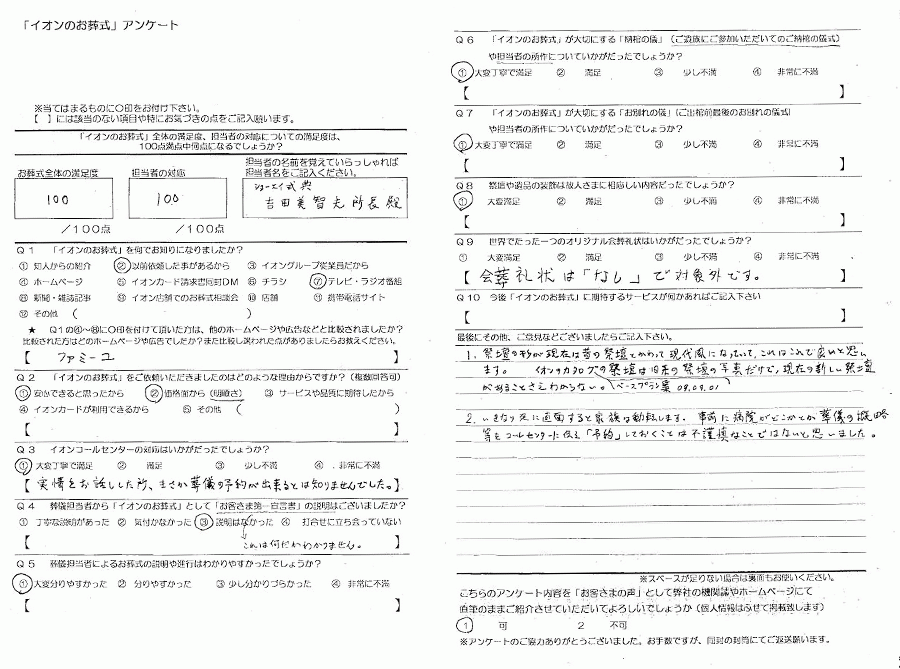 「イオンのお葬式」アンケート
※当てはまるものに○印をお付け下さい。
【　】には該当のない項目や特にお気づきの点をご記入願います。
「イオンのお葬式」全体の満足度、担当者の対応についての満足度は、
100点満点中何点になるでしょうか？
お葬式全体の満足度
100
／100点
担当者の対応
100
／100点
担当者の名前を覚えていらっしゃれば
担当者名をご記入ください。
吉田美智夫所長殿
Q１　「イオンのお葬式」を何でお知りになりましたか？
① 知人からの紹介　② 以前依頼した事があるから　③ イオングループ従業員だから
④ ホームページ　⑤ イオンカード請求書同封DM　⑥ チラシ　⑦ テレビ・ラジオ番組
⑧ 新聞・雑誌記事　⑨ イオン店舗でのお葬式相談会　⑩ 店舗　⑪ 携帯電話サイト
⑫ その他　(　)
★　Q１の④～⑪に○印を付けて頂いた方は、他のホームページや広告などと比較されましたか？
比較された方はどのホームページや広告でしたか？また比較し選ばれた点がありましたらお教えください。
【　ファミーユ　】
Q２　「イオンのお葬式」をご依頼いただきましたのはどのような理由からですか？（複数回答可）
① 安心できると思ったから　② 価格面から（明瞭さ）　③ サービスや品質に期待したから
④ イオンカードが利用できるから　⑤ その他（　）
【　】
Q３　イオンコールセンターの対応はいかがだったでしょうか？
① 大変丁寧で満足　② 満足　③ 少し不満　④ 非常に不満
【実情をお話しした所、まさか葬儀の予約が出来るとは知りませんでした。】
Q４　葬儀担当者から「イオンのお葬式」として「お客さま第一宣言書」の説明はございましたか？
① 丁寧な説明があった　② 気付かなかった　③ 説明はなかった　④ 打合せに立ち会っていない
【　これは何だかわかりません。　】
Q５　葬儀担当者によるお葬式の説明や進行はわかりやすかったでしょうか？
① 大変分りやすかった　② 分りやすかった　③ 少し分かりづらかった　④ 非常に不満
【　】
Q６　「イオンのお葬式」が大切にする「納棺の儀」（ご遺族にご参加いただいてのご納棺の儀式）
や担当者の所作についていかがだったでしょうか？
① 大変丁寧で満足　② 満足　③ 少し不満　④ 非常に不満
【　】
Q７　「イオンのお葬式」が大切にする「お別れの儀」（ご出棺前最後のお別れの儀式）
や担当者の所作についていかがだったでしょうか？
① 大変丁寧で満足　② 満足　③ 少し不満　④ 非常に不満
【　】
Q８　祭壇や遺品の装飾は故人さまに相応しい内容だったでしょうか？
① 大変満足　② 満足　③ 少し不満　④ 非常に不満
【　】
Q９　世界でたった一つのオリジナル会葬礼状はいかがだったでしょうか？
① 大変満足　② 満足　③ 少し不満　④ 非常に不満
【会葬礼状は「なし」で対象外です。　】
Q１０　今後「イオンのお葬式」に期待するサービスが何かあればご記入下さい
【　】
最後にその他、ご意見などございましたらご記入下さい。
1. 祭壇の形が現在は昔の祭壇とかわって現代風になっていて、これはこれで良いと思い
ます。　イオンのカタログの祭壇は旧来の祭壇の写真だけで、現在の新しい祭壇
があることさえわからない。（ベースプラン書 09.09.01）
2. いきなり死に直面すると家族は動転します。事前に病院がどこかとか葬儀の概略
等をコールセンターに伝え「予約」しておくことは不謹慎なことではないと思いました。
※スペースが足りない場合は裏面もお使いください。
こちらのアンケート内容を「お客さまの声」として弊社の機関誌やホームページにて
直筆のままご紹介させていただいてよろしいでしょうか（個人情報はふせて掲載致します）
１　可　２　不可
※アンケートのご協力ありがとうございました。お手数ですが、同封の封筒にてご返送願います。